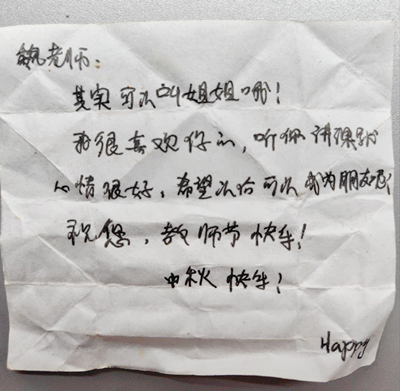 老师：
其实可以叫姐姐哦！
我很喜欢你的，听你讲课
心情很好，希望以后可以成为朋友吧！
祝您，教师节快乐！
中秋快乐！
Happy